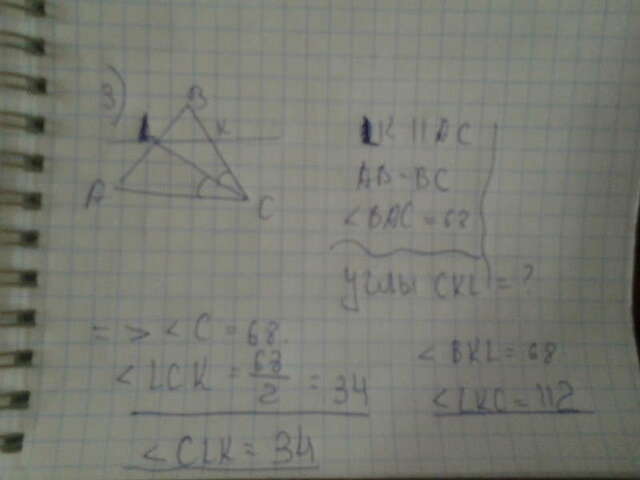 3)
B
L
K
A
C
LK || AC
AB = BC
<BAC = 68
углы CKL = ?
=> <C = 68.
<LCK = 68/2 = 34
<CLK = 34
<BKL = 68
<LKC = 112